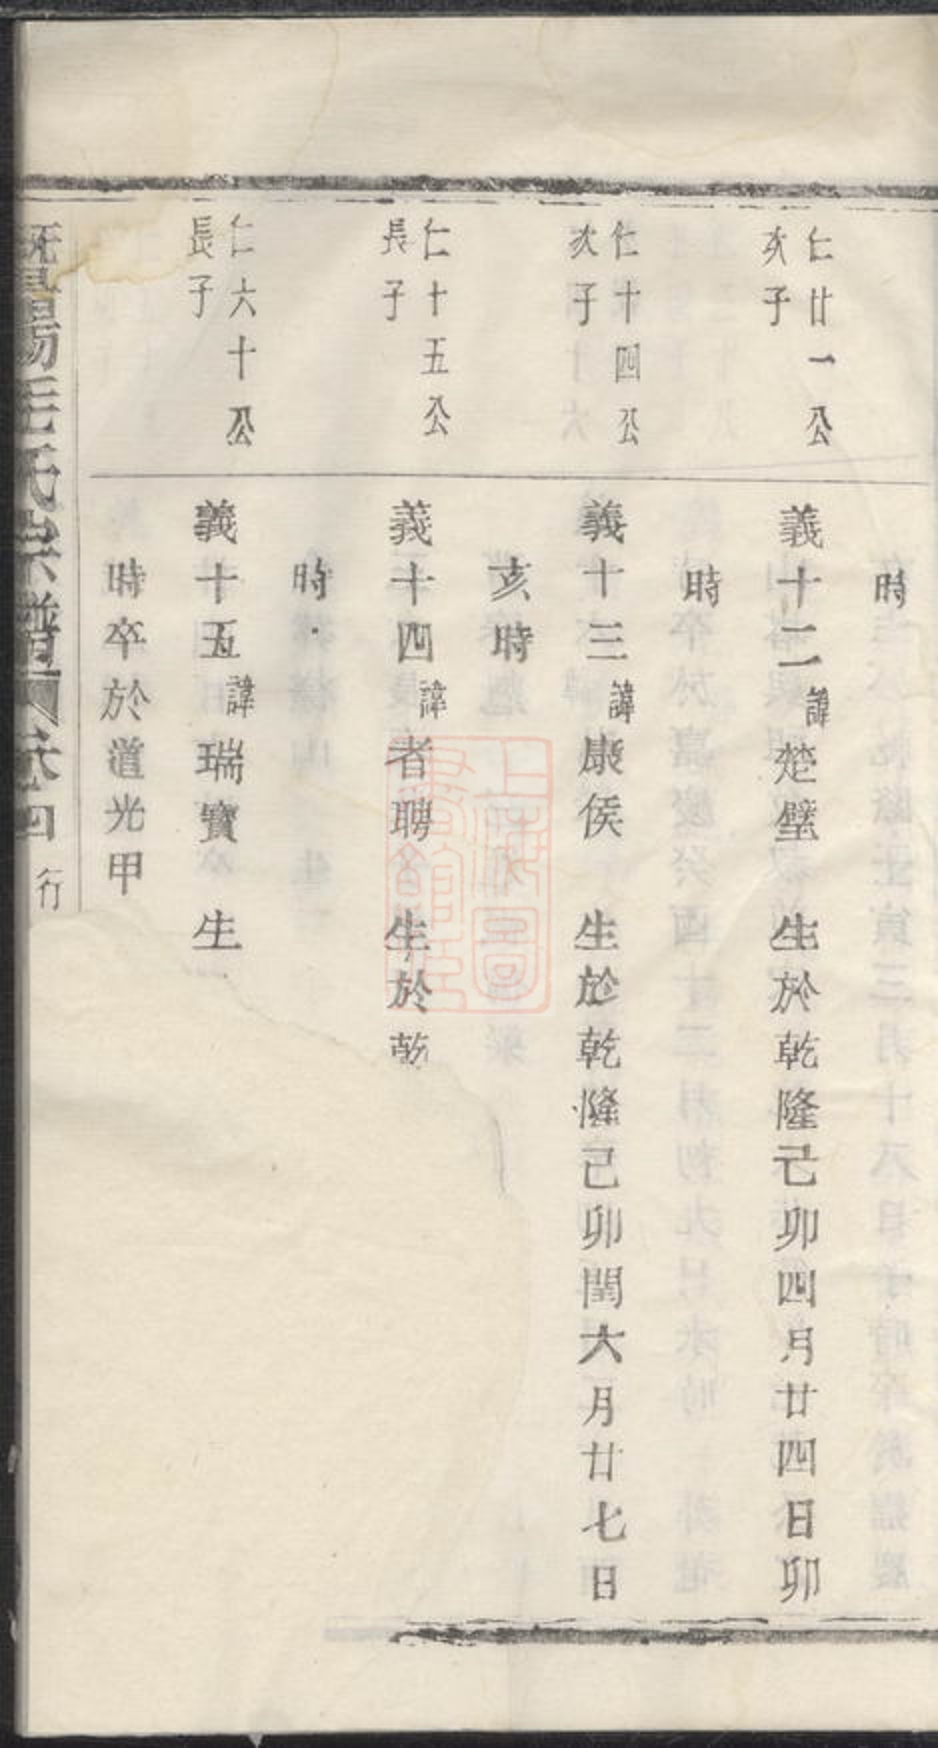 時
仁廿一公
次子
義十二諱楚璧　生於乾隆己卯四月廿四日卯
時
仁十四公
次子
義十三諱康侯　生於乾隆己卯閏六月廿七日
亥時
仁十五公
長子
義十四諱者聘　生於乾
時
仁六十公
長子
義十五諱瑞寶　生
時卒於道光甲
暨陽毛氏宗譜　卷四　行